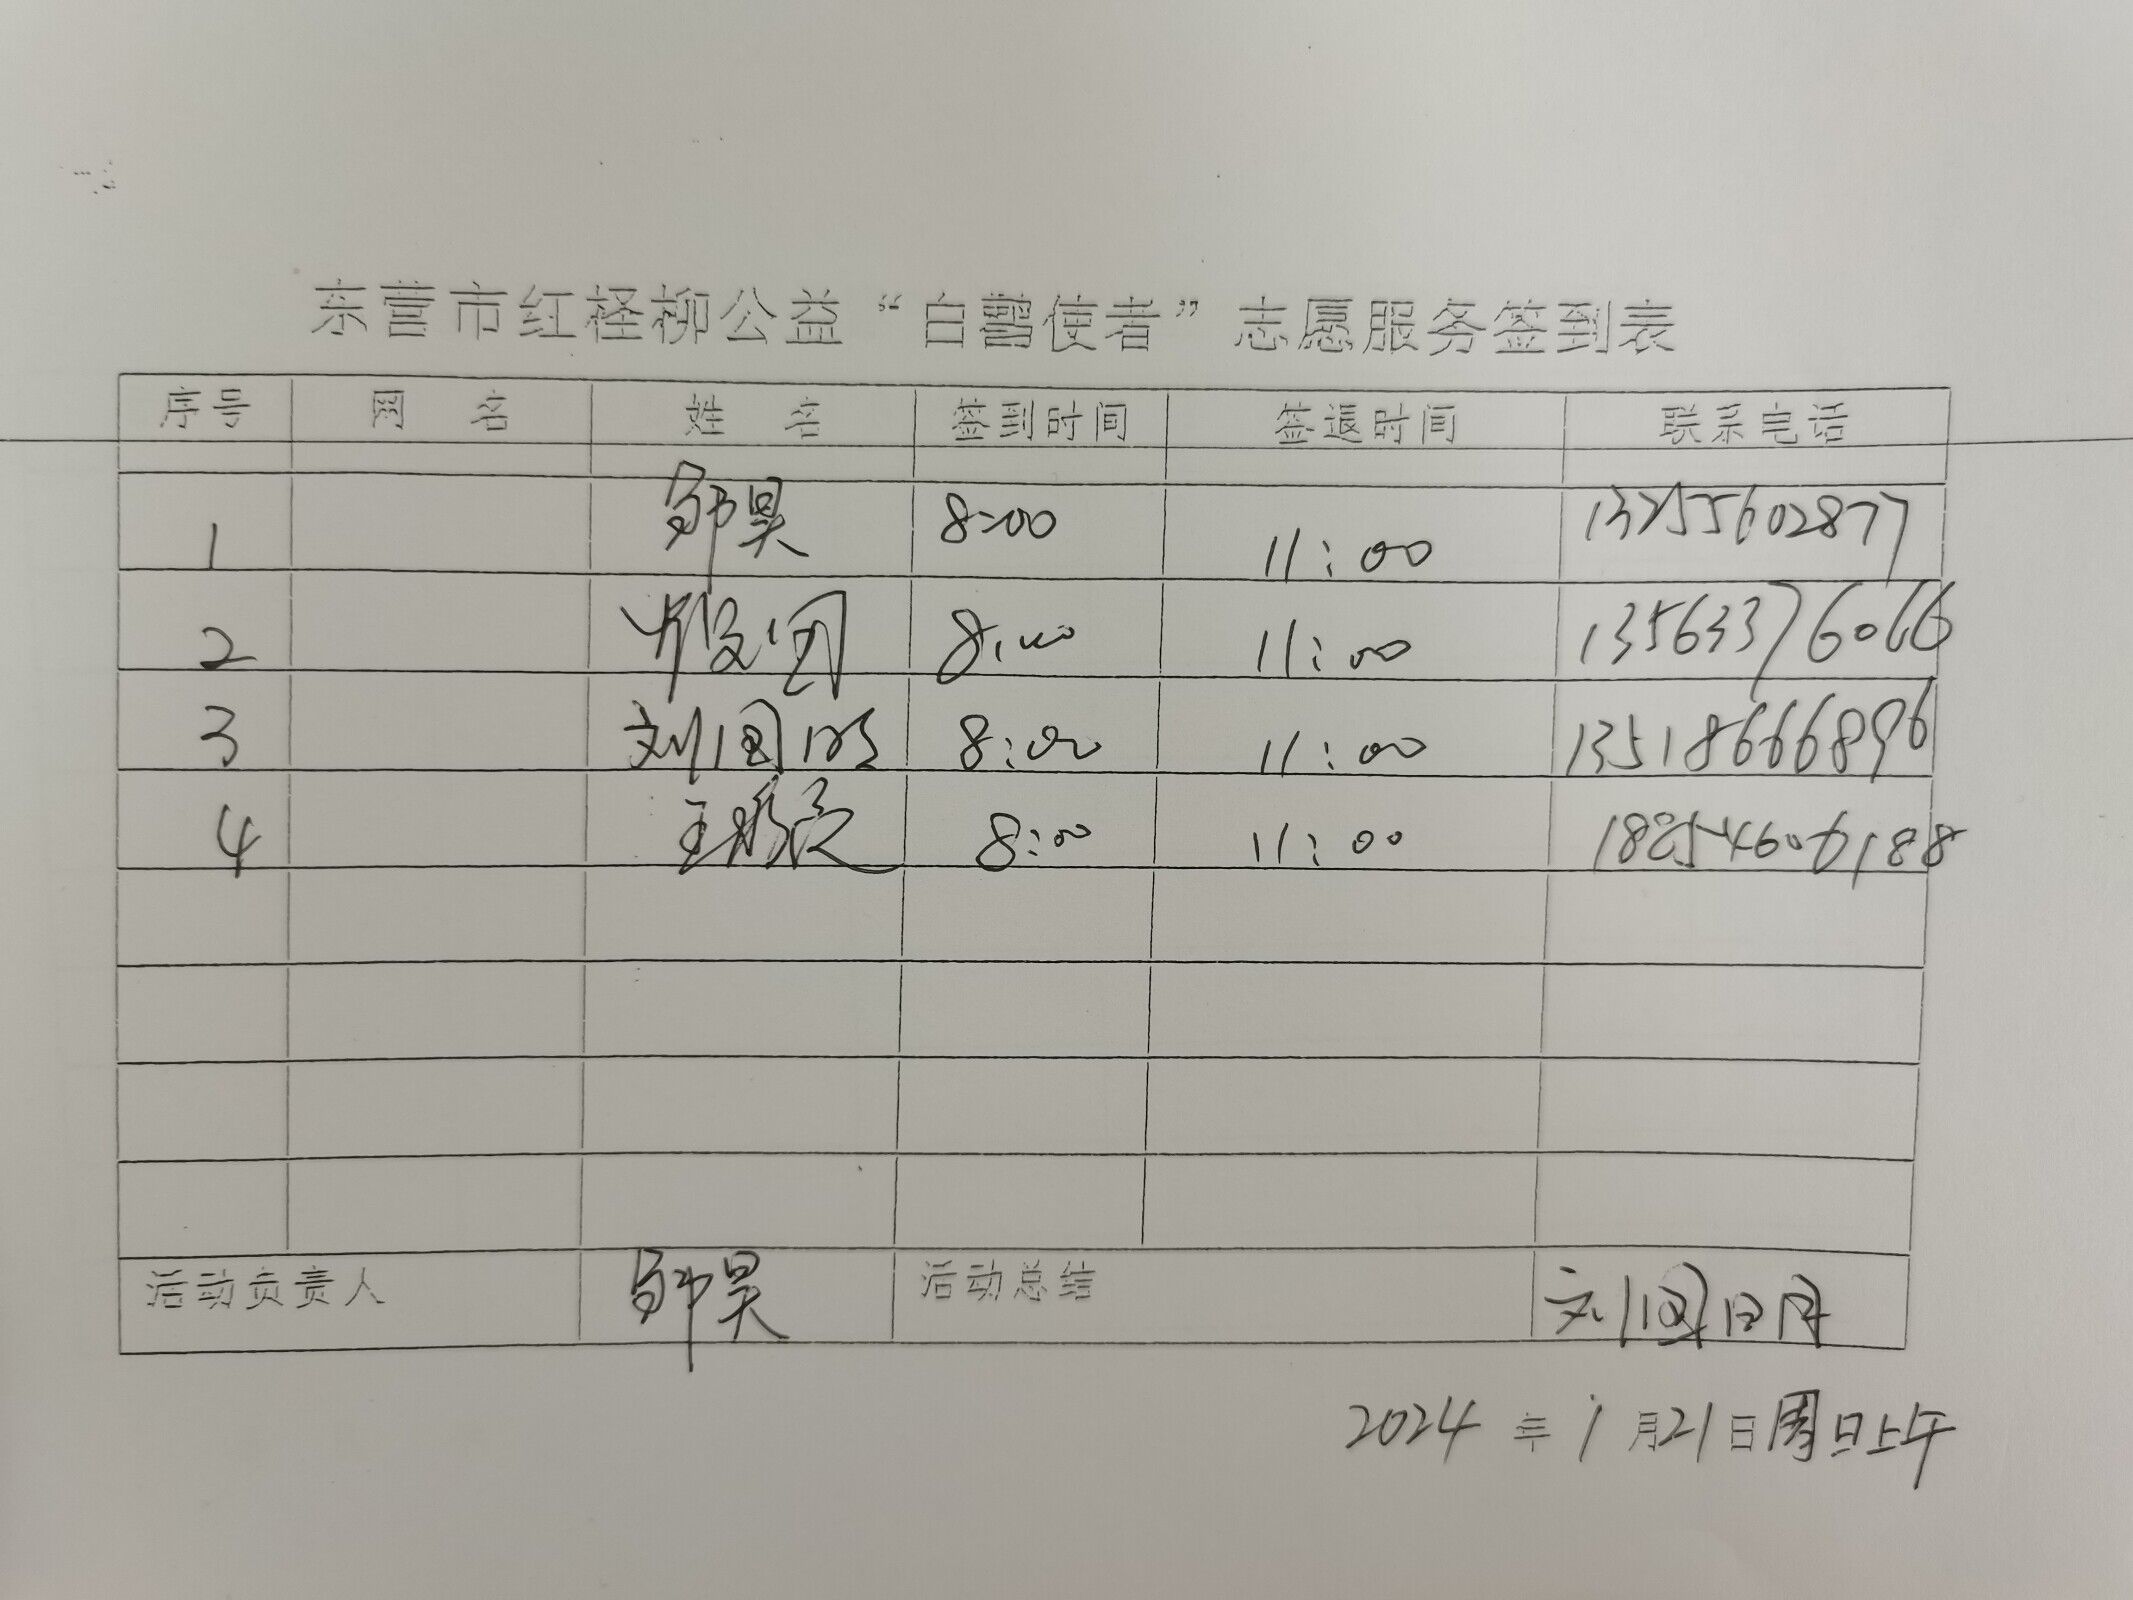 东营市红柽柳公益“白鹭使者”志愿服务签到表
序号 网 名 姓 名 签到时间 签退时间 联系电话
1 邹昊 8:00 11:00 13255602877
2 8:00 11:00 13563376066
3 刘国明 8:00 11:00 13518666896
4 8:00 11:00
活动负责人 邹昊 活动总结 刘国明
2024年1月21日周日上午